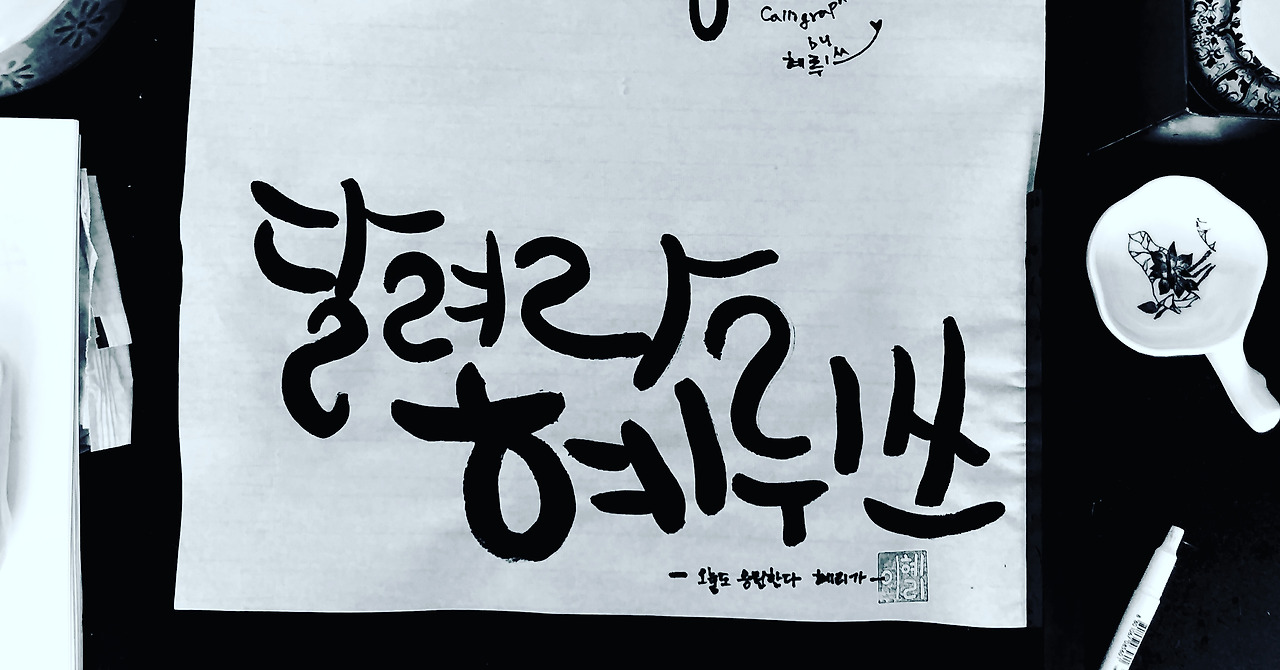 Calligraph
by
혜뤼쓰
달려라
혜뤼쓰
- 오늘도 응원한다 혜리가 -